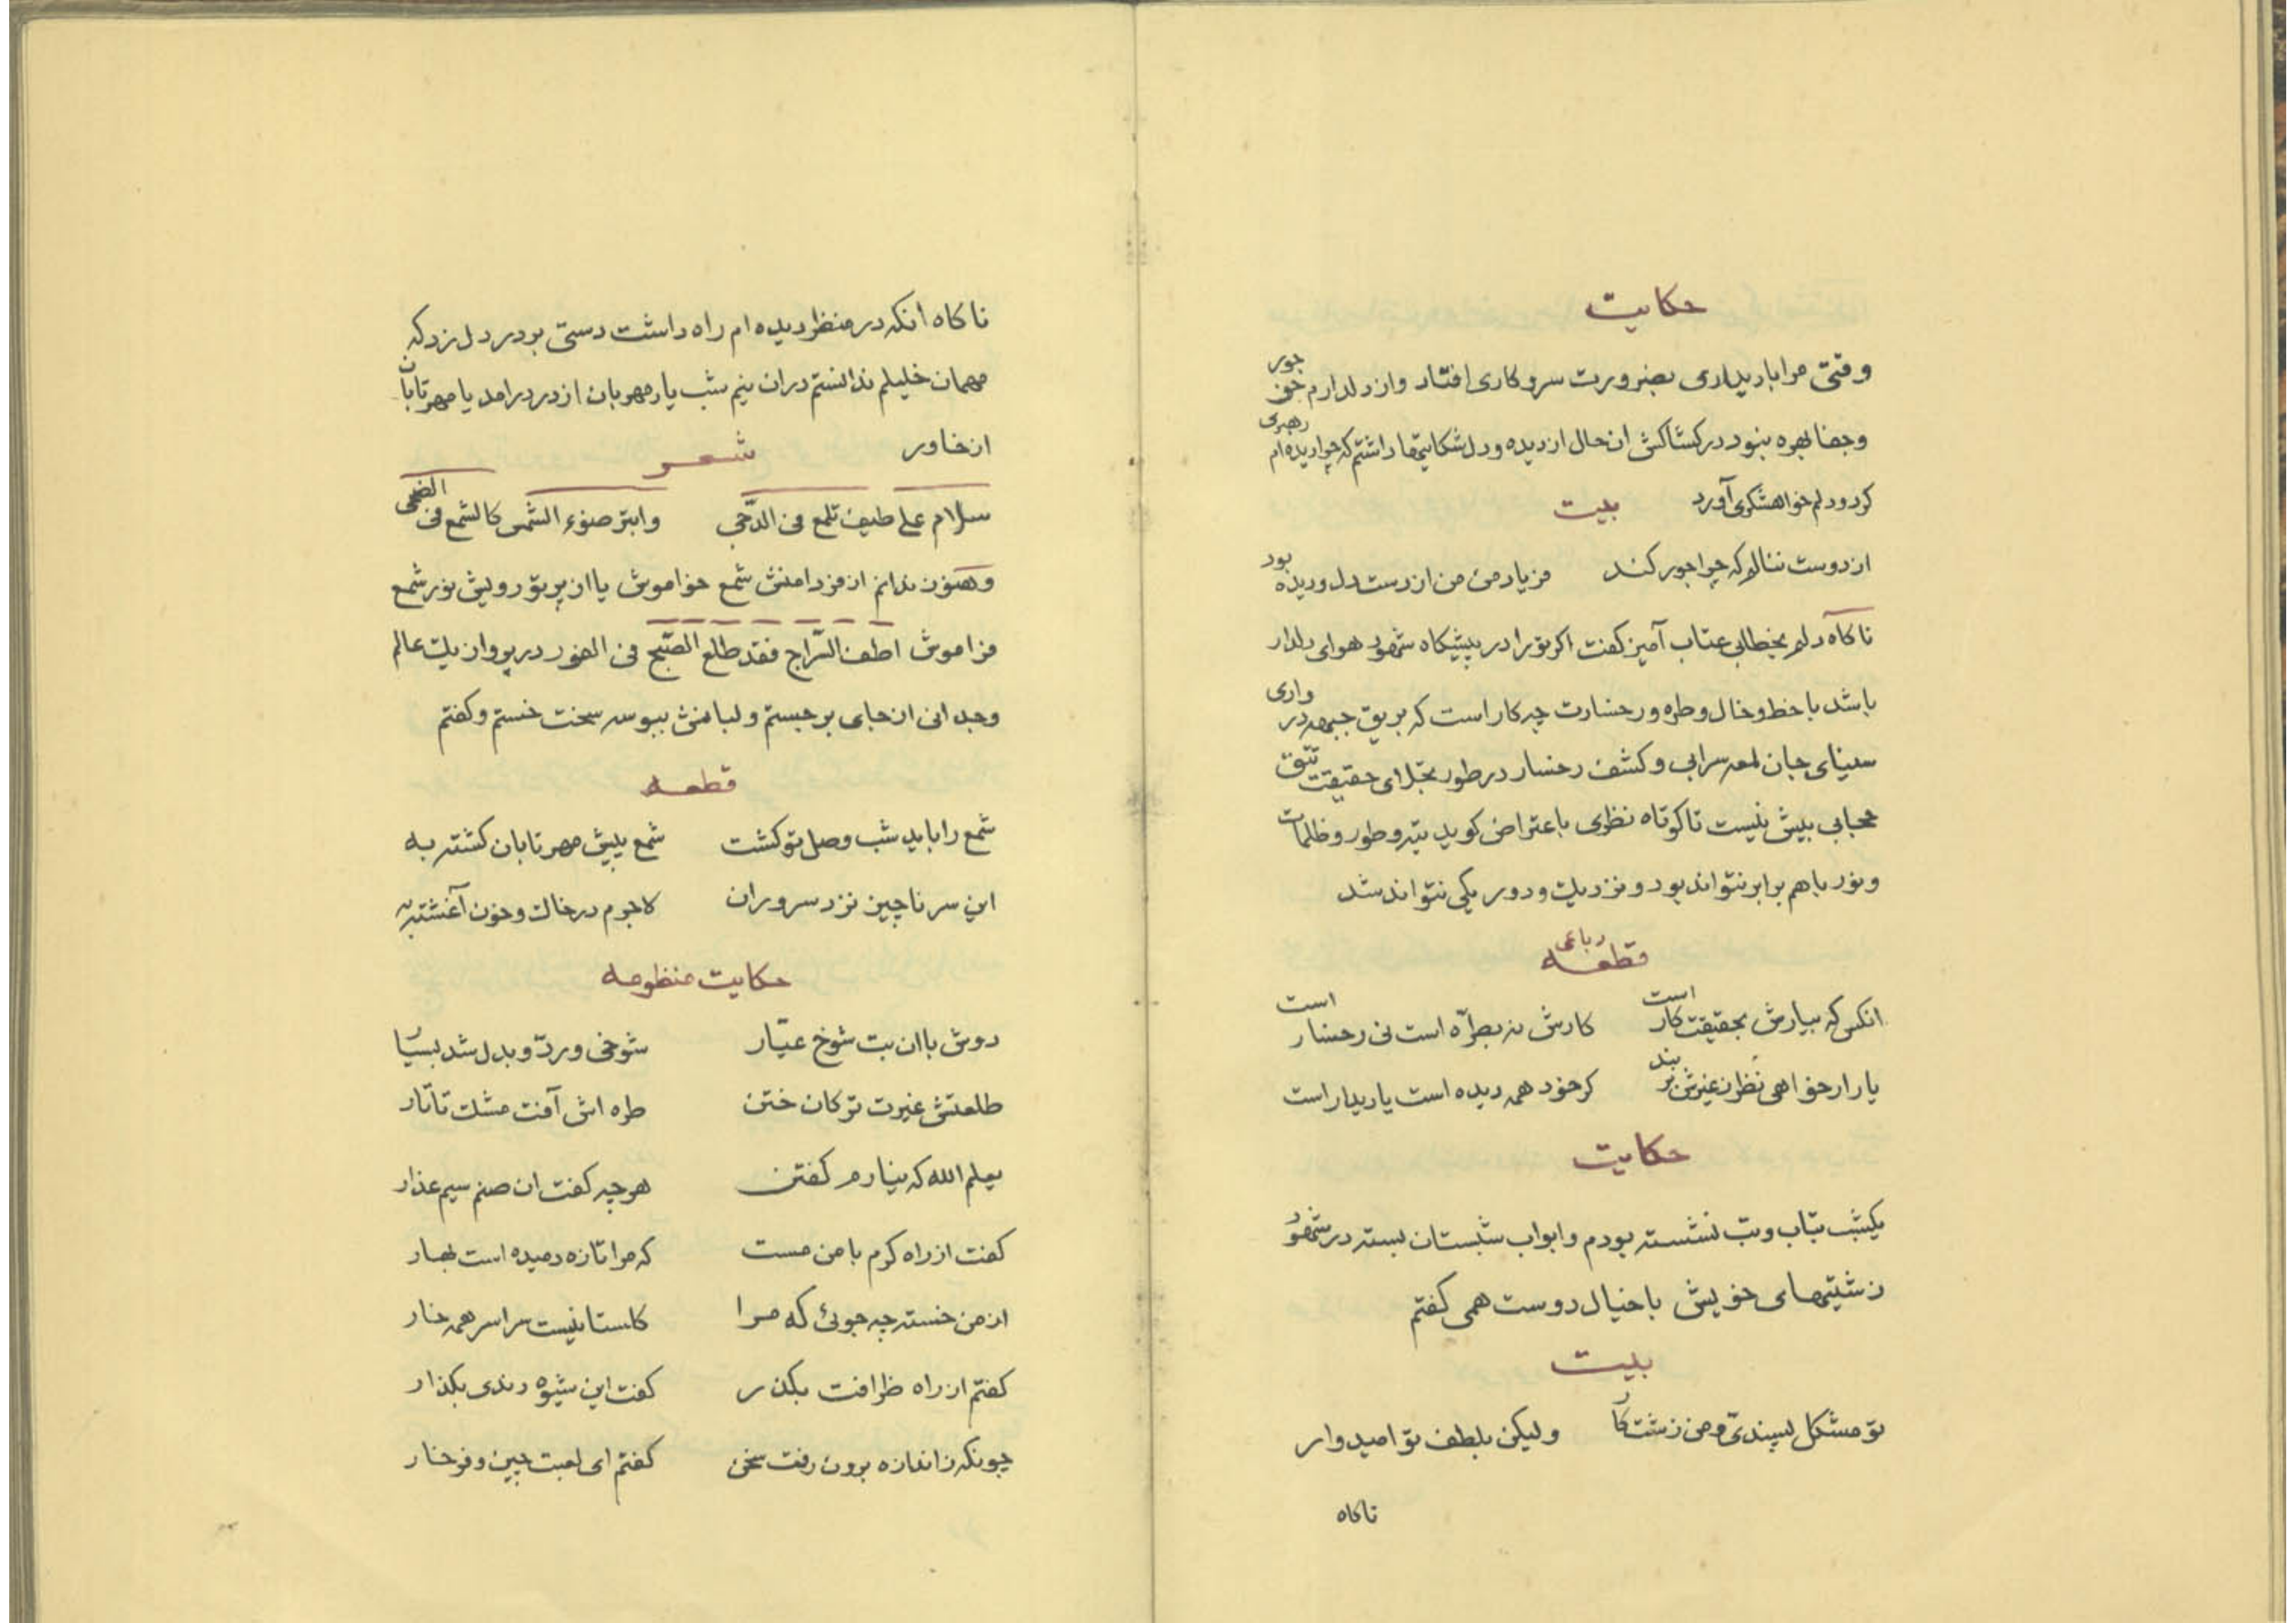 حکایت
وقتی مرا با دیداری بضرورت سر و کاری افتاد و از دلدارم جز جور
و جفا بهره نبود در کشاکش ان حال از دیده و دل شکایتها داشتم که چرا دیده‌ام رهبری
کرد و دلم خواهشکری آورد
بیت
از دوست ننالم که چرا جور کند    فریاد من از دست دل و دیده بود
ناکاه دلم بخطابی عتاب آمیز کفت اکر تو را در پیشکاه شهود هوای دلدار
باشد با خط و خال و طره و رخسارت چه کار است که بریق جبهه در وادی
سینای جان لمعه سرابی و کشف رخسار در طور تجلای حقیقت تتق
حجابی بیش نیست تا کوتاه نظری باعتراض کوید تیه و طور و ظلمات
و نور با هم برابر نتواند بود و نزدیک و دور یکی نتواند شد
رباعی
قطعه
انکس که بیارش بحقیقت کار است    کارش نه بطرّه است نی رخسار است
یار ار خواهی نظر ز غیرش بر بند    کر خود همه دیده است یا دیدار است
حکایت
یکشب بتاب و تب نشسته بودم و ابواب شبستان بسته در شهود
زشتیهای خویش با خیال دوست همی کفتم
بیت
تو مشکل پسندی و من زشت کار    ولیکن بلطف تو امیدوار
ناکاه
ناکاه انکه در منظر دیده‌ام راه داشت دستی بر در دل زد که
مهمان خلیلم ندانستم دران نیم شب یار مهربان از در درامد یا مهر تابان
از خاور
شعر
سلام علی طیف تلمع فی الدّجی    وابتز ضوء الشمس کالشمع فی الضحی
وهنوز ندانم از فر دامنش شمع خواموش یا از پرتو رویش نور شمع
فراموش اطف السّراج فقد طلع الصّبح فی الفور در پرواز یک عالم
وجدانی از جای برجستم و لبانش ببوسه سخت خستم و کفتم
قطعه
شمع را باید شب وصل تو کشت    شمع پیش مهر تابان کشته به
این سر ناچیز نزد سروران    لاجرم در خاک و خون آغشته به
حکایت منظومه
دوش با ان بت شوخ عیّار    شوخی و ردّ و بدل شد بسیار
طلعتش غیرت ترکان ختن    طره‌اش آفت مشک تاتار
یعلم الله که نیارم کفتن    هر چه کفت ان صنم سیم عذار
کفت از راه کرم با من مست    که مرا تازه دمیده است بهار
از من خسته چه جوئی که مرا    کاستانیست سراسر همه خار
کفتم از راه ظرافت بکذر    کفت این شیوه رندی بکذار
چونکه ز اندازه برون رفت سخن    کفتم ای لعبت چین و فرخار